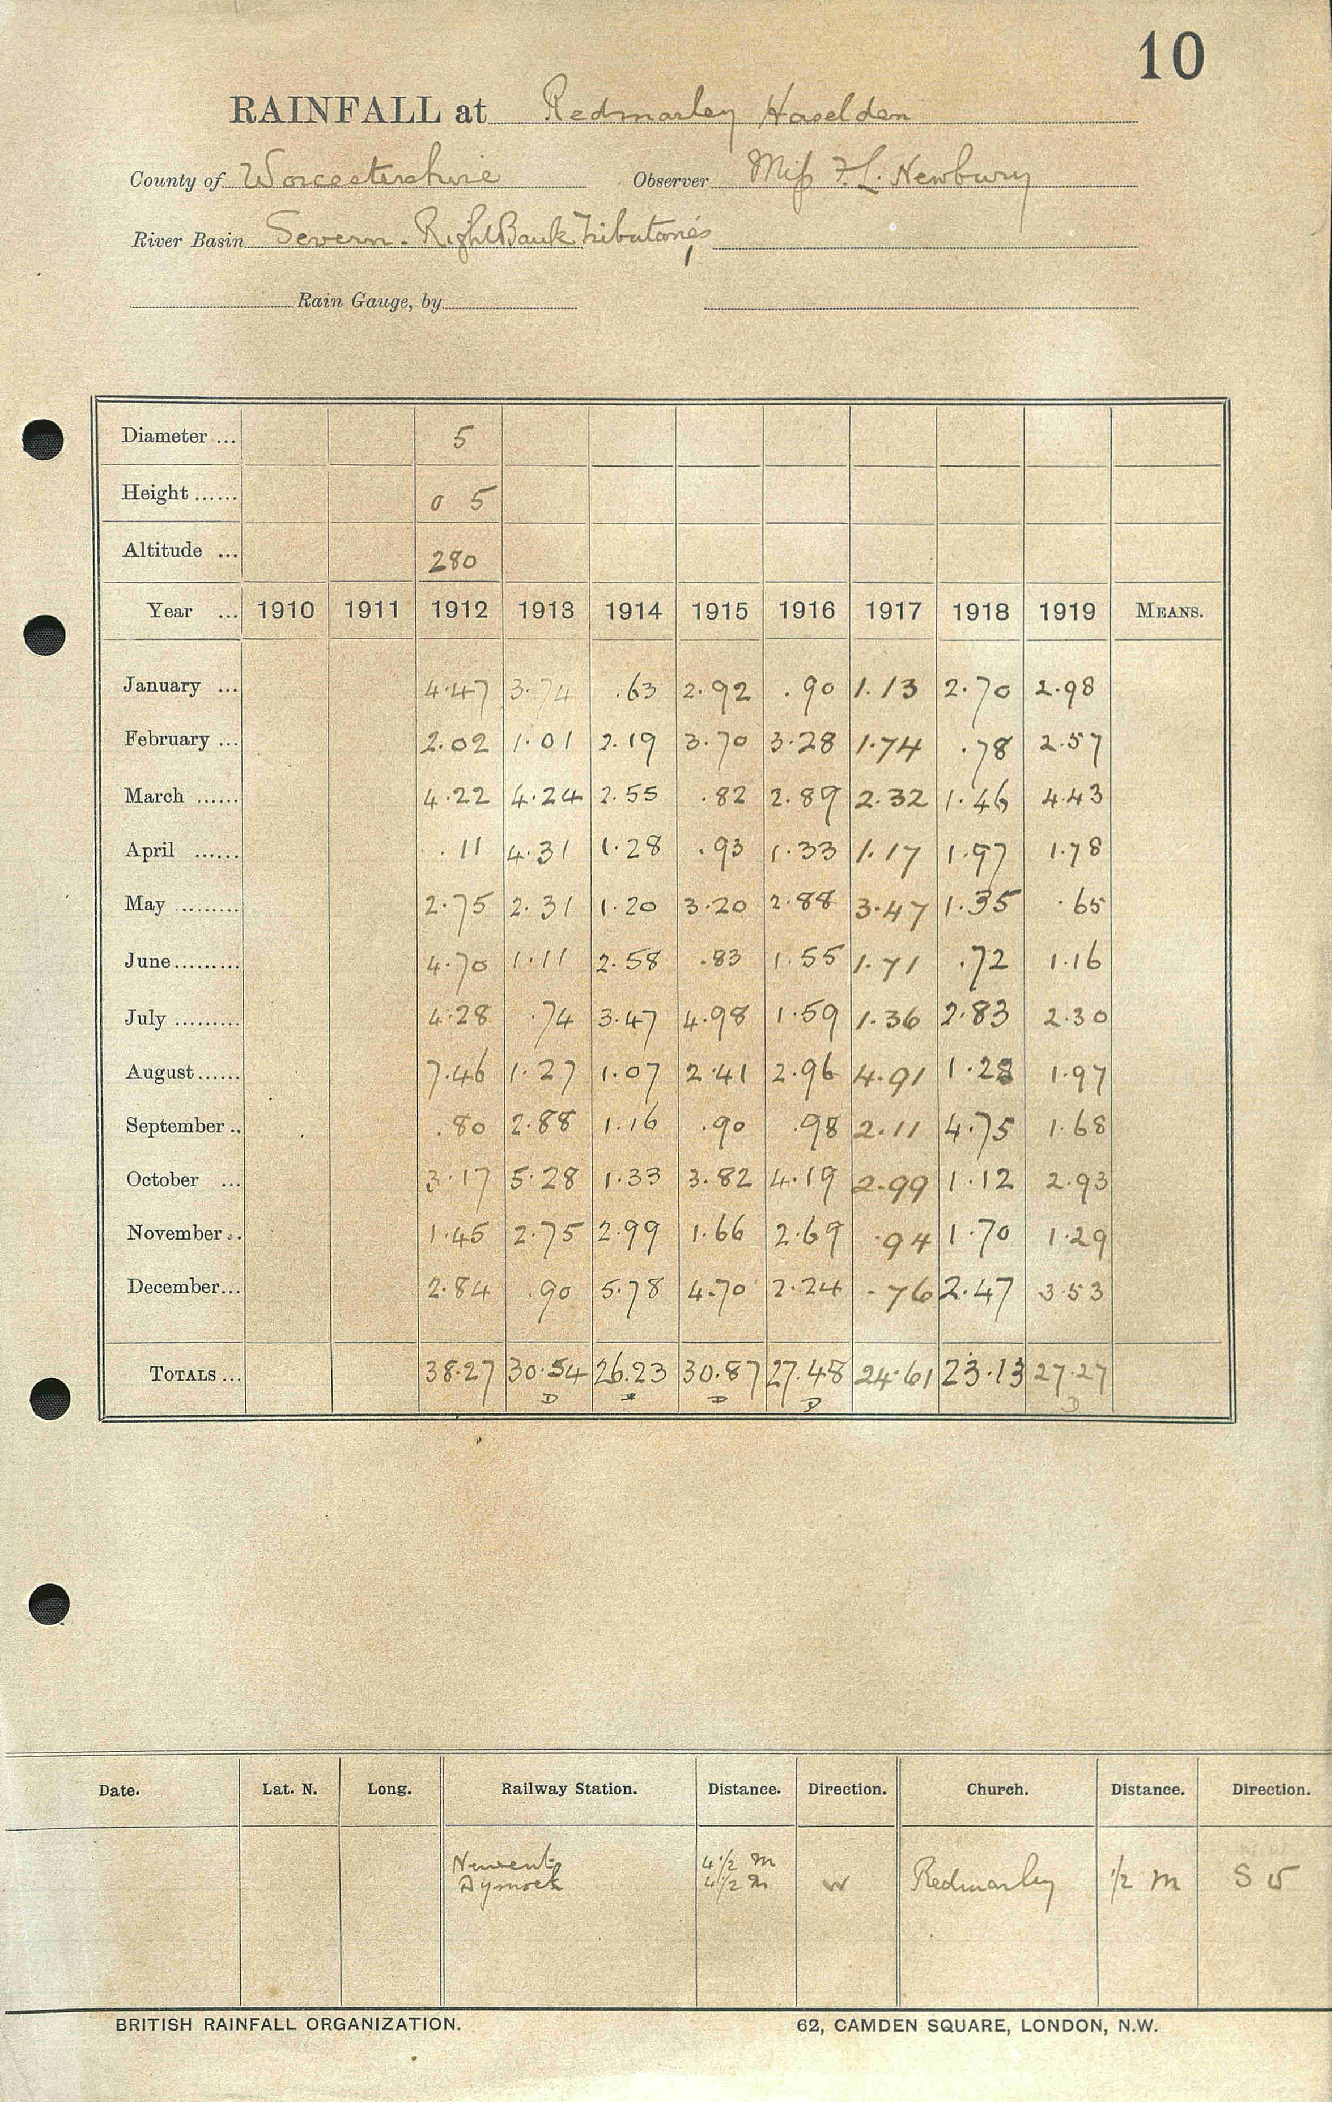 10
RAINFALL at Redmarley Haselden
County of Worcestershire Observer Miss F. L. Newbury
River Basin Severn. Right Bank Tributaries
Rain Gauge, by
Diameter ... 5
Height ...... 0 5
Altitude ... 280
Year ... 1910 1911 1912 1913 1914 1915 1916 1917 1918 1919 MEANS.
January ... 4.47 3.74 .63 2.92 .90 1.13 2.70 2.98
February ... 2.02 1.01 2.19 3.70 3.28 1.74 .78 2.57
March ...... 4.22 4.24 2.55 .82 2.89 2.32 1.46 4.43
April ...... .11 4.31 1.28 .93 1.33 1.17 1.97 1.78
May ......... 2.75 2.31 1.20 3.20 2.88 3.47 1.35 .65
June......... 4.70 1.11 2.58 .83 1.55 1.71 .72 1.16
July ......... 4.28 .74 3.47 4.98 1.59 1.36 2.83 2.30
August...... 7.46 1.27 1.07 2.41 2.96 4.91 1.28 1.97
September .. .80 2.88 1.16 .90 .98 2.11 4.75 1.68
October ... 3.17 5.28 1.33 3.82 4.19 2.99 1.12 2.93
November .. 1.45 2.75 2.99 1.66 2.69 .94 1.70 1.29
December... 2.84 .90 5.78 4.70 2.24 .76 2.47 3.53
TOTALS ... 38.27 30.54 26.23 30.87 27.48 24.61 23.13 27.27
D D D D
Date. Lat. N. Long. Railway Station. Distance. Direction. Church. Distance. Direction.
Newent 4 1/2 m
Dymock 4 1/2 m W Redmarley 1/2 m S W
BRITISH RAINFALL ORGANIZATION. 62, CAMDEN SQUARE, LONDON, N.W.